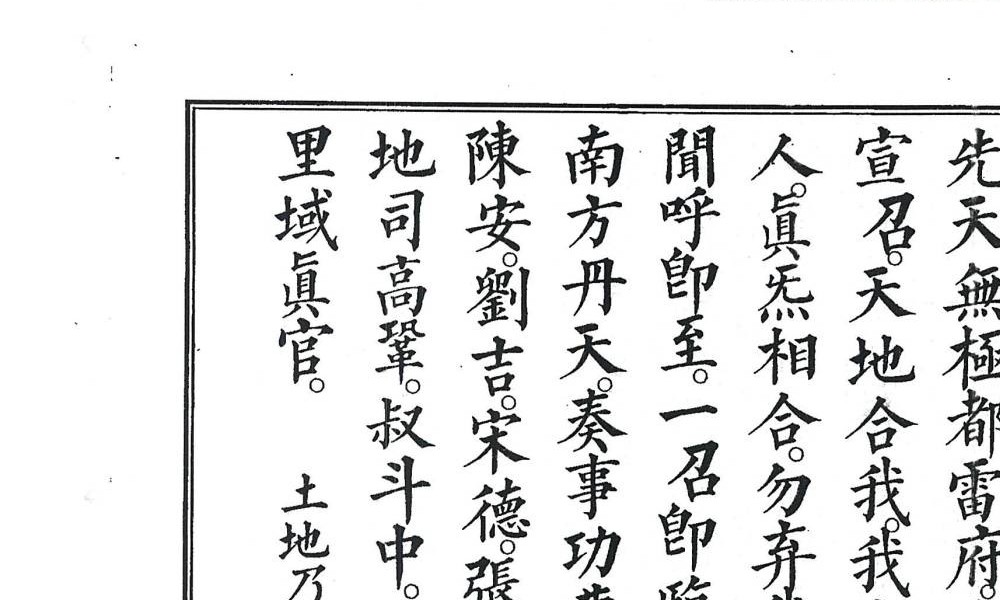 先天無極都雷府。
宣召。天地合我。我
人。眞炁相合。勿弃
聞呼卽至。一召卽臨
南方丹天。奏事功
陳安。劉吉。宋德。張
地司高鞏。叔斗中。
里域眞官。 土地乃